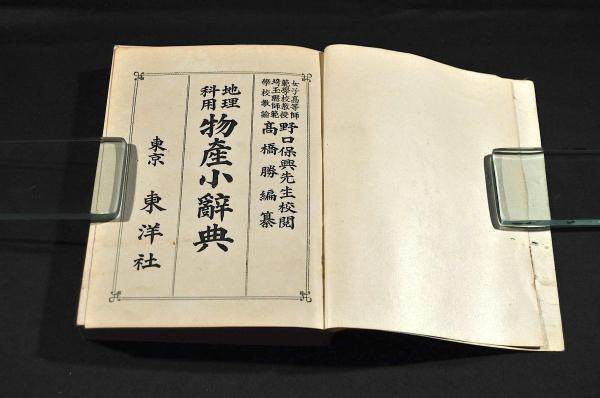 女子高等師
範學校教授
野口保興先生校閲
埼玉縣師範
學校教諭
高橋勝編纂
地理
科用
物產小辭典
東京
東洋社